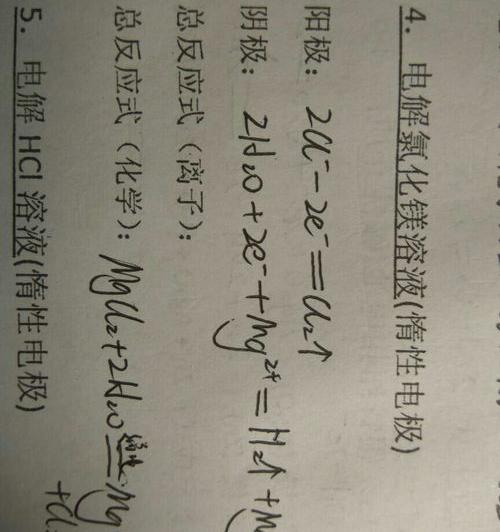 4. 电解氯化镁溶液(惰性电极)
阳极：2Cl⁻-2e⁻=Cl₂↑
阴极：2H₂O+2e⁻+Mg²⁺=H₂↑+M
总反应式（离子）：
总反应式（化学）：MgCl₂+2H₂O 通电 Mg
+Cl
5. 电解 HCl 溶液(惰性电极)